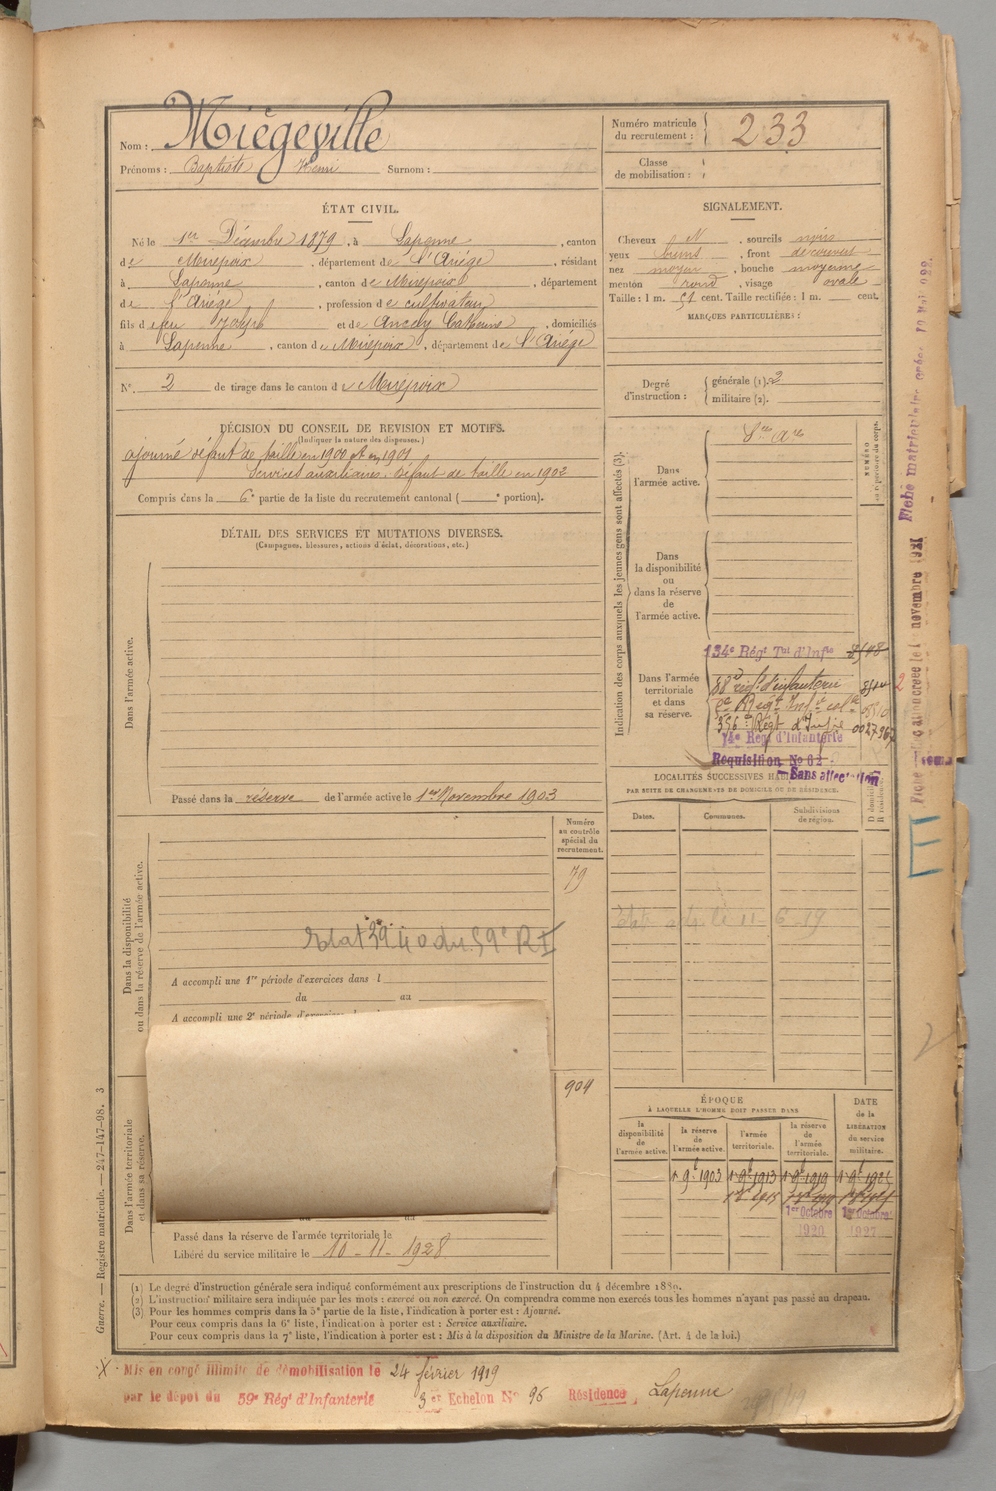 Nom : Miégeville
Prénoms : Baptiste Henri Surnom :
Numéro matricule du recrutement : 233
Classe de mobilisation :
ÉTAT CIVIL.
Né le 1er Décembre 1879, à Lapenne, canton
de Mirepoix, département de l'Ariége, résidant
à Lapenne, canton de Mirepoix, département
de l'Ariége, profession de cultivateur
fils de feu Joseph et de Ancely Catherine, domiciliés
à Lapenne, canton de Mirepoix, département de l'Ariége
N°. 2 de tirage dans le canton de Mirepoix
SIGNALEMENT.
Cheveux N, sourcils noirs
yeux bruns, front découvert
nez moyen, bouche moyenne
menton rond, visage ovale
Taille : 1 m. 51 cent. Taille rectifiée : 1 m. cent.
MARQUES PARTICULIÈRES :
Degré d'instruction :
générale (1). 2
militaire (2).
DÉCISION DU CONSEIL DE REVISION ET MOTIFS.
(Indiquer la nature des dispenses.)
ajourné défaut de taille en 1900 et en 1901
Services auxiliaires. Défaut de taille en 1902
Compris dans la 6e partie de la liste du recrutement cantonal ( e portion).
DÉTAIL DES SERVICES ET MUTATIONS DIVERSES.
(Campagnes, blessures, actions d'éclat, décorations, etc.)
Dans l'armée active.
Passé dans la réserve de l'armée active le 1er Novembre 1903
Indication des corps auxquels les jeunes gens sont affectés (3).
NUMÉRO
Dans l'armée active.
Dans la disponibilité ou dans la réserve de l'armée active.
134e Régt Tal d'Infie
Dans l'armée territoriale et dans sa réserve.
88e régt d'infanterie
356e Régt d'Infie
14e Régt d'Infanterie
Requisition No 62
Sans affectation
LOCALITÉS SUCCESSIVES
PAR SUITE DE CHANGEMENTS DE DOMICILE OU DE RÉSIDENCE.
Dates.
Communes.
Subdivisions de région.
Numéro au contrôle spécial du recrutement.
79
Dans la disponibilité ou dans la réserve de l'armée active.
Etat 39-40 du 59e RI
A accompli une 1re période d'exercices dans l
du au
A accompli une 2e période d'exercices
904
Dans l'armée territoriale et dans sa réserve.
Passé dans la réserve de l'armée territoriale le
Libéré du service militaire le 10-11-1928
ÉPOQUE
À LAQUELLE L'HOMME DOIT PASSER DANS
la disponibilité de l'armée active.
la réserve de l'armée active.
l'armée territoriale.
la réserve de l'armée territoriale.
DATE de la LIBÉRATION du service militaire.
1 9e 1903
1 9e 1913
1 9e 1919
1er Octobre
1er Octobre
1920
1927
Guerre. — Registre matricule. — 247-147-98. 3
(1) Le degré d'instruction générale sera indiqué conformément aux prescriptions de l'instruction du 4 décembre 1889.
(2) L'instruction militaire sera indiquée par les mots : exercé ou non exercé. On comprendra comme non exercés tous les hommes n'ayant pas passé au drapeau.
(3) Pour les hommes compris dans la 5e partie de la liste, l'indication à porter est : Ajourné.
Pour ceux compris dans la 6e liste, l'indication à porter est : Service auxiliaire.
Pour ceux compris dans la 7e liste, l'indication à porter est : Mis à la disposition du Ministre de la Marine. (Art. 4 de la loi.)
X Mis en congé illimité de démobilisation le 24 février 1919
par le dépot du 59e Régt d'Infanterie 3er Echelon No 96 Résidence, Lapenne